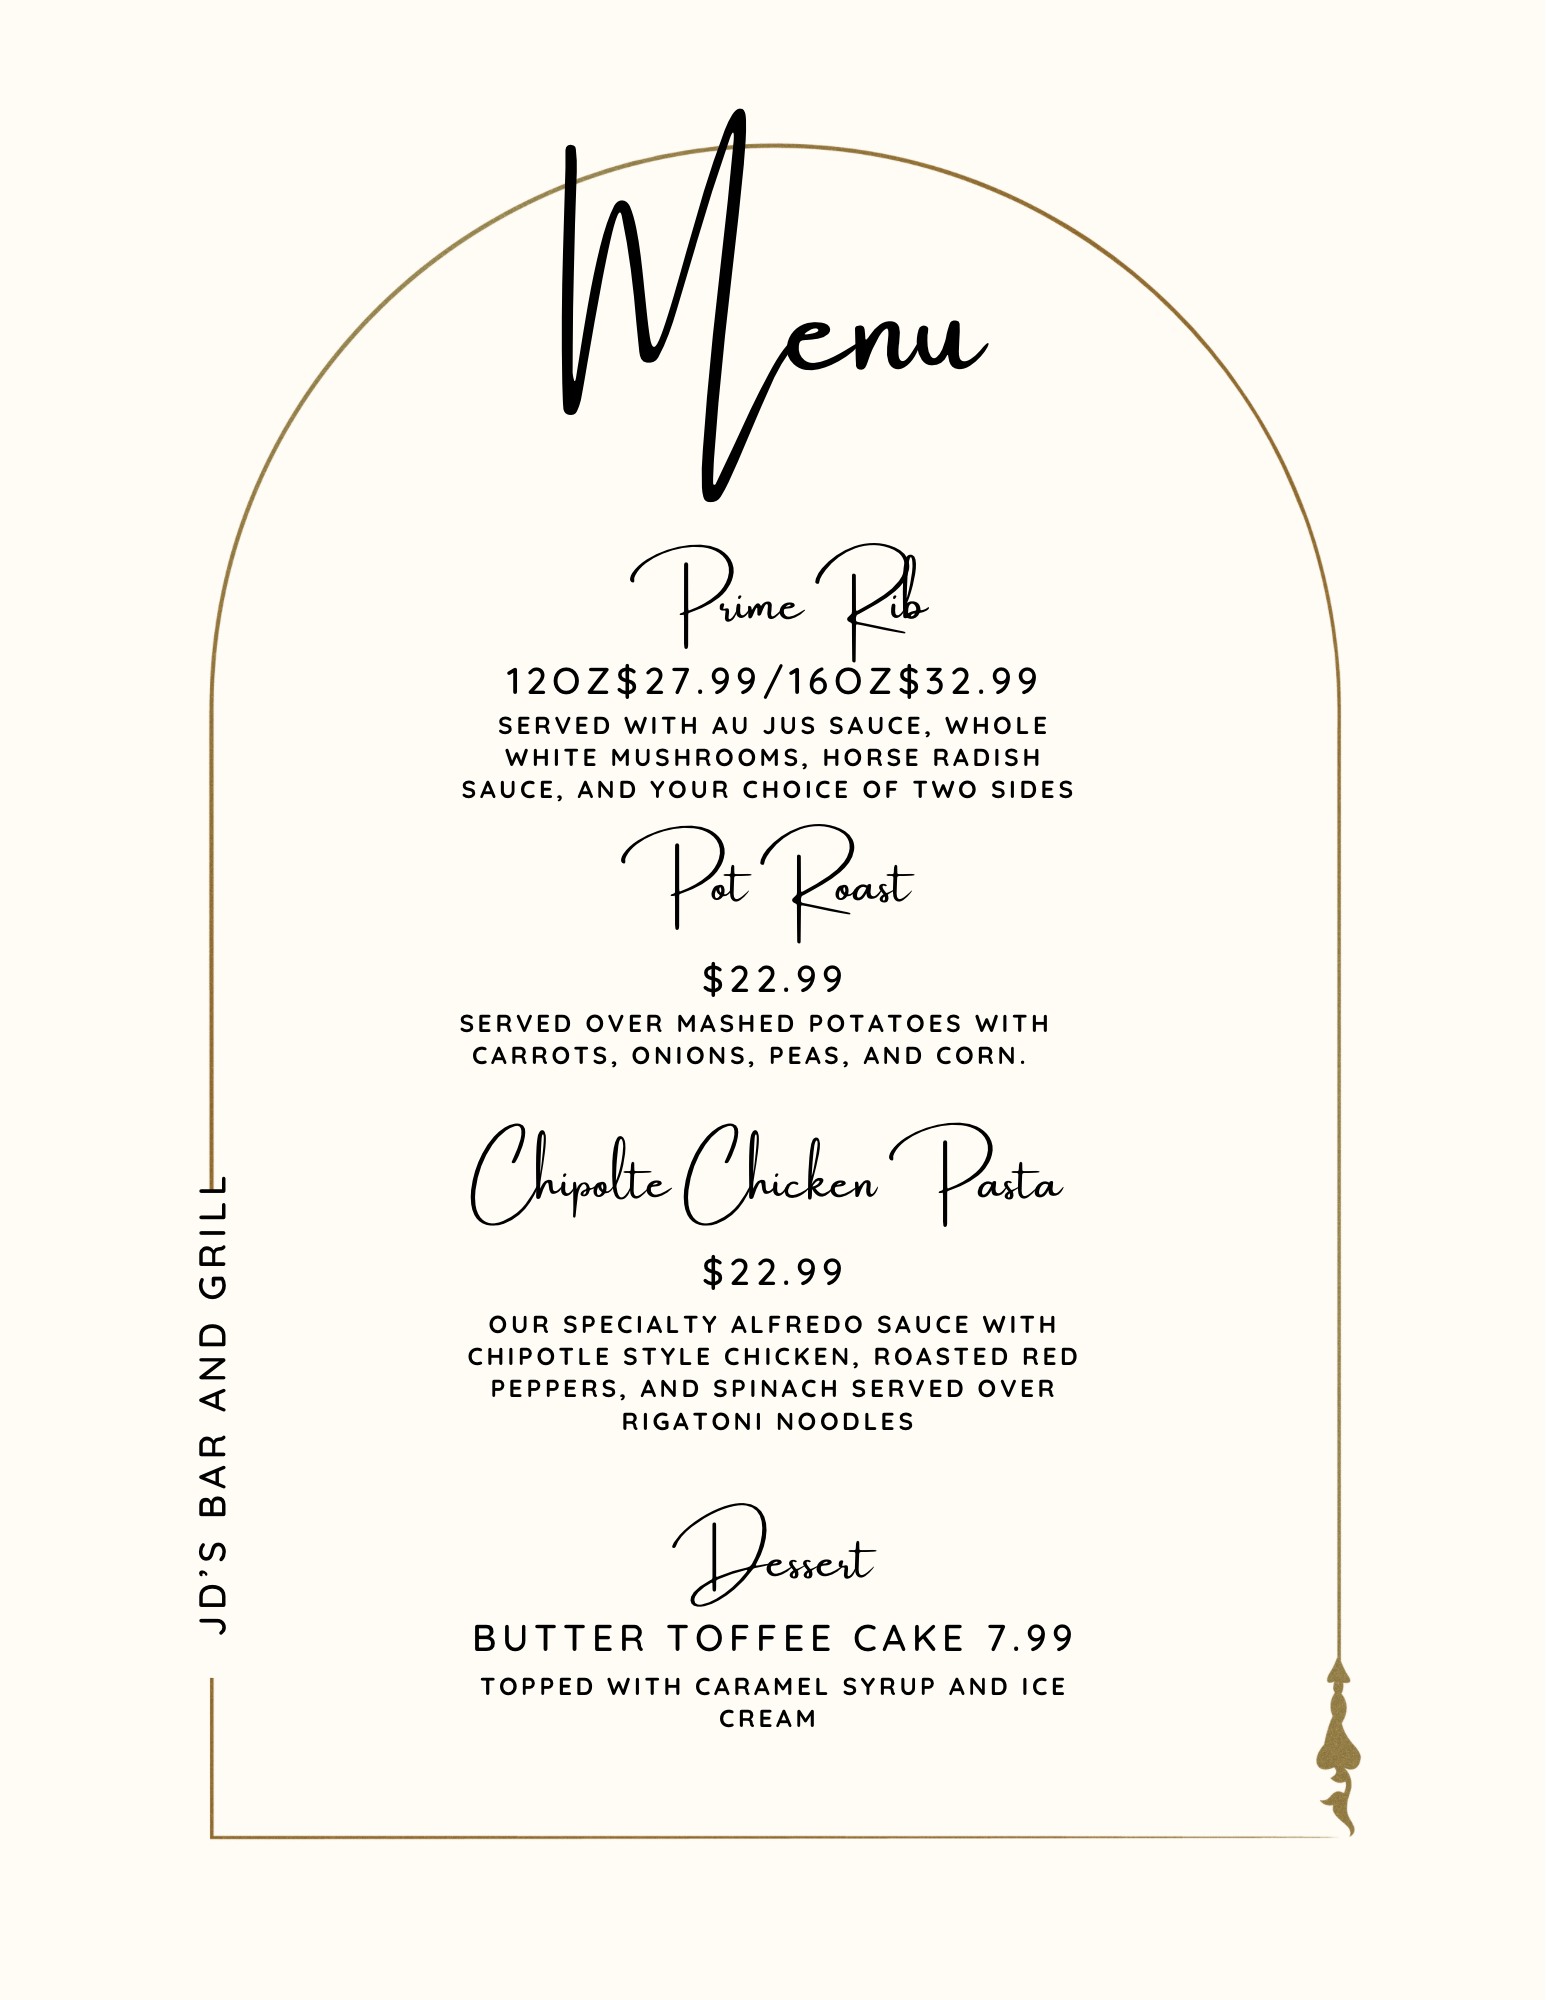 Menu
Prime Rib
12OZ$27.99/16OZ$32.99
SERVED WITH AU JUS SAUCE, WHOLE
WHITE MUSHROOMS, HORSE RADISH
SAUCE, AND YOUR CHOICE OF TWO SIDES
Pot Roast
$22.99
SERVED OVER MASHED POTATOES WITH
CARROTS, ONIONS, PEAS, AND CORN.
Chipolte Chicken Pasta
$22.99
OUR SPECIALTY ALFREDO SAUCE WITH
CHIPOTLE STYLE CHICKEN, ROASTED RED
PEPPERS, AND SPINACH SERVED OVER
RIGATONI NOODLES
Dessert
BUTTER TOFFEE CAKE 7.99
TOPPED WITH CARAMEL SYRUP AND ICE
CREAM
JD'S BAR AND GRILL